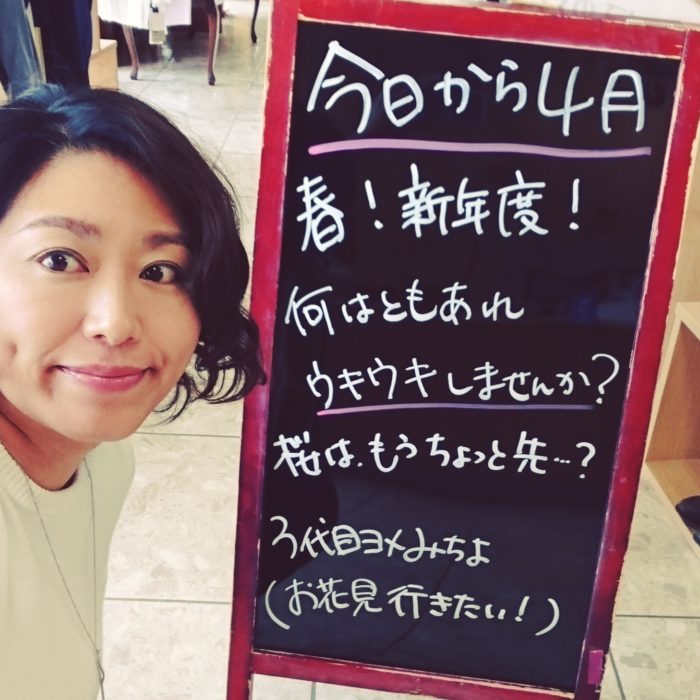 今日から4月
春！新年度！
何はともあれ
ウキウキしませんか？
桜は、もうちょっと先…？
3代目ヨメみちよ
（お花見行きたい！）